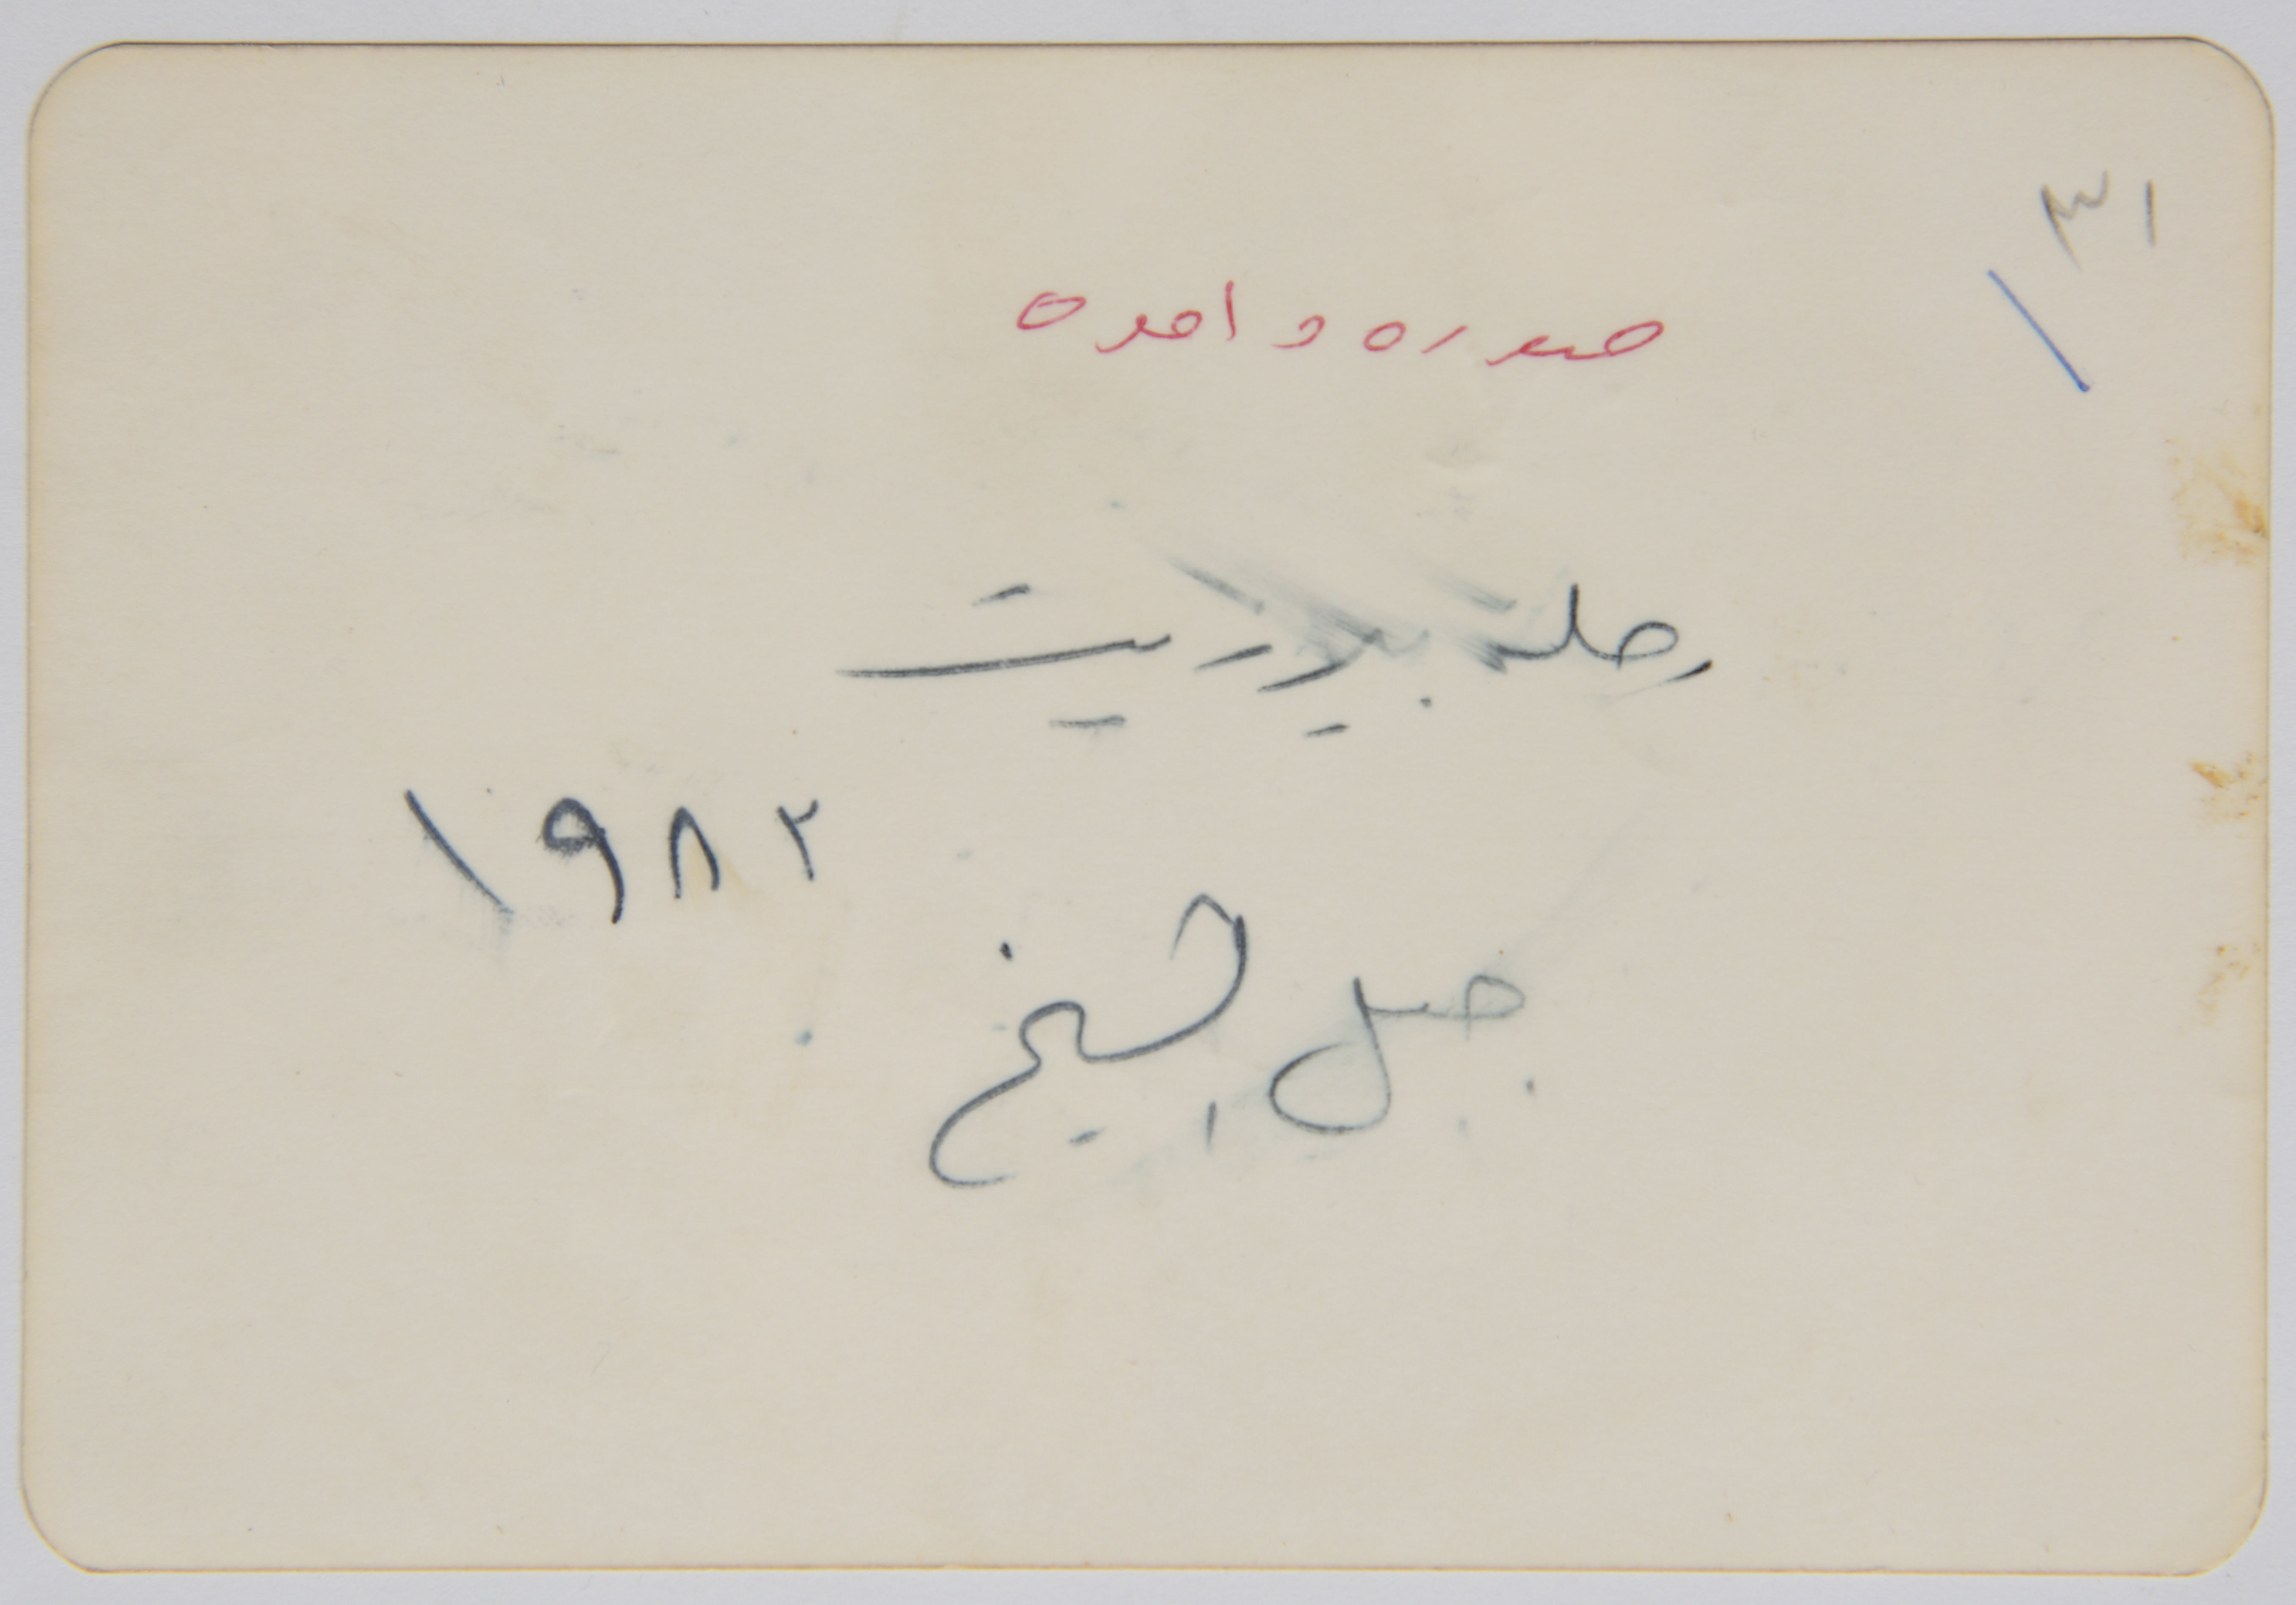 ٣١
١
صوره واحده
رحلة بيرزيت
١٩٨٢
جبل الشيخ